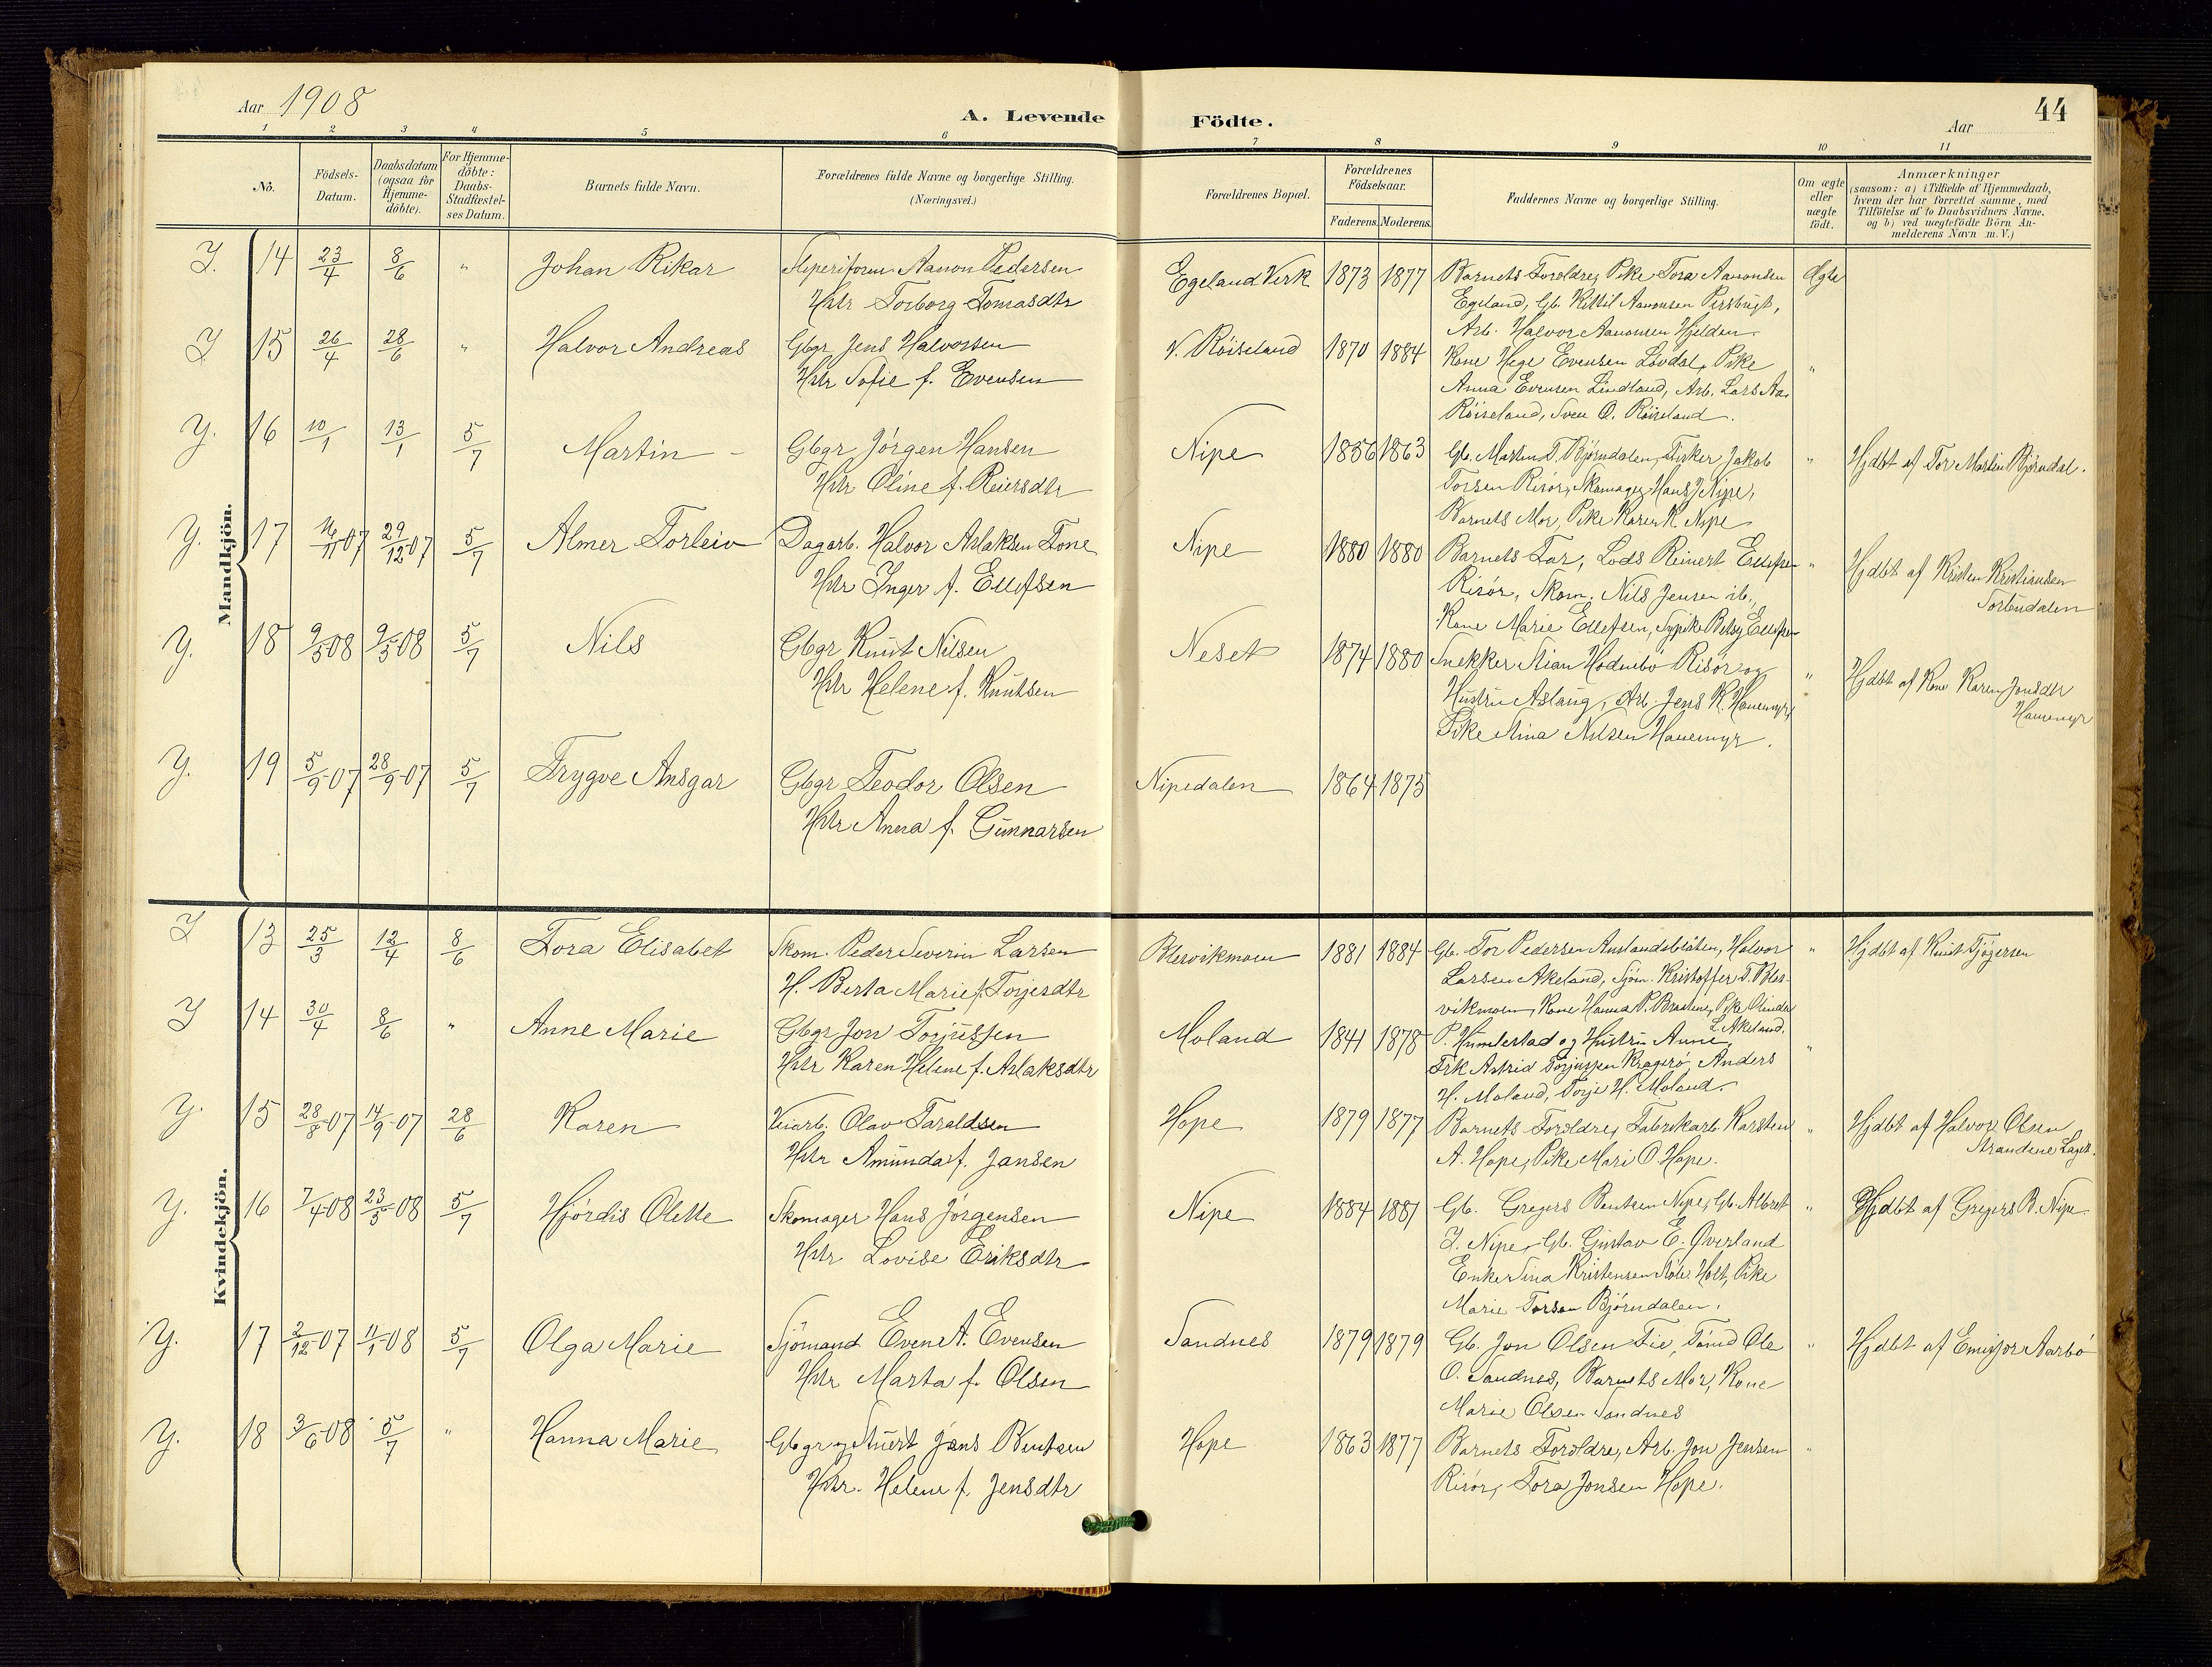 Aar 1908
A. Levende Födte.
Aar
44
1 2 3 4 5 6 7 8 9 10 11
No.
Födsels-
Datum.
Daabsdatum
(ogsaa for
Hjemme-
döbte).
For Hjemme-
döbte:
Daabs-
Stadfæstel-
ses Datum.
Barnets fulde Navn.
Forældrenes fulde Navne og borgerlige Stilling.
(Næringsvei.)
Forældrenes Bopæl.
Forældrenes
Födselsaar.
Faderens. Moderens.
Faddernes Navne og borgerlige Stilling.
Om ægte
eller
uægte
födt.
Anmærkninger
(saasom: a) i Tilfælde af Hjemmedaab,
hvem der har forrettet samme, med
Tilföielse af to Daabsvidners Navne,
og b) ved uægtefödte Börn An-
melderens Navn m. V.)
Mandkjön.
Y. 14 23/4 8/6 " Johan Rikar Aanon Pedersen Egeland Verk 1873 1877 Barnets Foreldre, Pike Tora Aanonsen Ægte
Hstr Torborg Tomasdtr
Egeland, Gb. Kittil Aanonsen
Arb. Halvor Aanonsen Hjelden.
Y 15 26/4 28/6 " Halvor Andreas Gbgr Jens Halvorsen N. Röiseland 1870 1884 Kone Hege Evensen Lövdal, Pike "
Hstr Sofie f. Evensen
Anna Evensen Lindland, Arb. Lars Aa.
Röiseland, Sven O. Röiseland.
Y. 16 10/1 13/1 5/7 Martin Gbgr Jörgen Hansen Nipe 1856 1863 Gb. Martin T. Björndalen, Fisker Jakob " Hjdbt af Tor Martin Björndal.
Hstr Oline f. Reiersdtr
Torsen Risör, Skomager Hans J Nipe,
Barnets Mor, Pike Karen K. Nipe
Y. 17 16/11-07 29/12-07 5/7 Almer Torleiv Dagarb. Halvor Aslaksen Tone Nipe 1880 1880 Barnets Far, Lods Reinert Ellefsen " Hjdbt af Kristen Kristiansen
Hstr Inger f. Ellefsen
Risör, Skom. Nils Jensen ib.,
Torbudalen
Kone Marie Ellefsen, Sypike Betsy Ellefsen
Y. 18 9/3-08 9/5-08 5/7 Nils Gbgr Knut Nilsen Neset 1874 1880 Snekker Stian Hödnebö Risör og " Hjdbt af Kone Karen Jonsdtr
Hstr Helene f. Knutsen
Hustru Aslaug, Arb. Jens K. Hanemyr,
Hanemyr
Pike Stina Nilsen Hanemyr.
Y. 19 5/9-07 28/9-07 5/7 Trygve Ansgar Gbgr Teodor Olsen Nipedalen 1864 1875
Hstr Anna f. Gunnarsen
Kvindekjön.
Y 13 25/3 12/4 8/6 Tora Elisabet Skom. Peder Severin Larsen Blesvikmoen 1881 1884 Gb. Tor Pedersen Auslandsbråten, Halvor " Hjdbt af Knut Tjögersen
H. Berta Marie f. Torjesdtr
Larsen Akeland, Sjöm. Kristoffer T. Bles-
vikmoen, Kone Hanna P. Bråtene, Pike Olinda
L. Akeland.
Y 14 30/4 8/6 " Anne Marie Gbgr Jon Torjussen Moland 1841 1878 P. Humlestad og Hustru Anne, "
Hstr Karen Helene f. Aslaksdtr
Frk Astrid Torjussen Kragerö, Anders
H. Moland, Torje H. Moland.
Y. 15 28/8-07 14/9-07 28/6 Karen Veiarb. Olav Taraldsen Hope 1879 1877 Barnets Foreldre, Fabrikarb. Karsten " Hjdbt af Halvor Olsen
Hstr Amunda f. Jansen
A. Hope, Pike Mari O Hope.
Strandene Laget.
Y. 16 7/4-08 23/5-08 5/7 Hjördis Olette Skomager Hans Jörgensen Nipe 1884 1881 Gb. Gregers Bentsen Nipe, Gb. Albret " Hjdbt af Gregers B. Nipe
Hstr Lovise Eriksdtr
J. Nipe, Gb. Gustav E. Överland
Enke Sina Kristensen Holt, Pike
Marie Torsen Björndalen.
Y. 17 2/12-07 11/1-08 5/7 Olga Marie Sjömand Even A. Evensen Sandnes 1879 1879 Gb. Jon Olsen Fie, Tömd Ole " Hjdbt af Emissor Aarbö
Hstr Marta f. Olsen
O. Sandnes, Barnets Mor, Kone
Marie Olsen Sandnes
Y. 18 3/6-08 5/7 " Hanna Marie Gbgr og Stuert Jens Bentsen Hope 1863 1877 Barnets Foreldre, Arb. Jon Jensen "
Hstr. Helene f. Jensdtr
Risör, Tora Jonsen Hope.